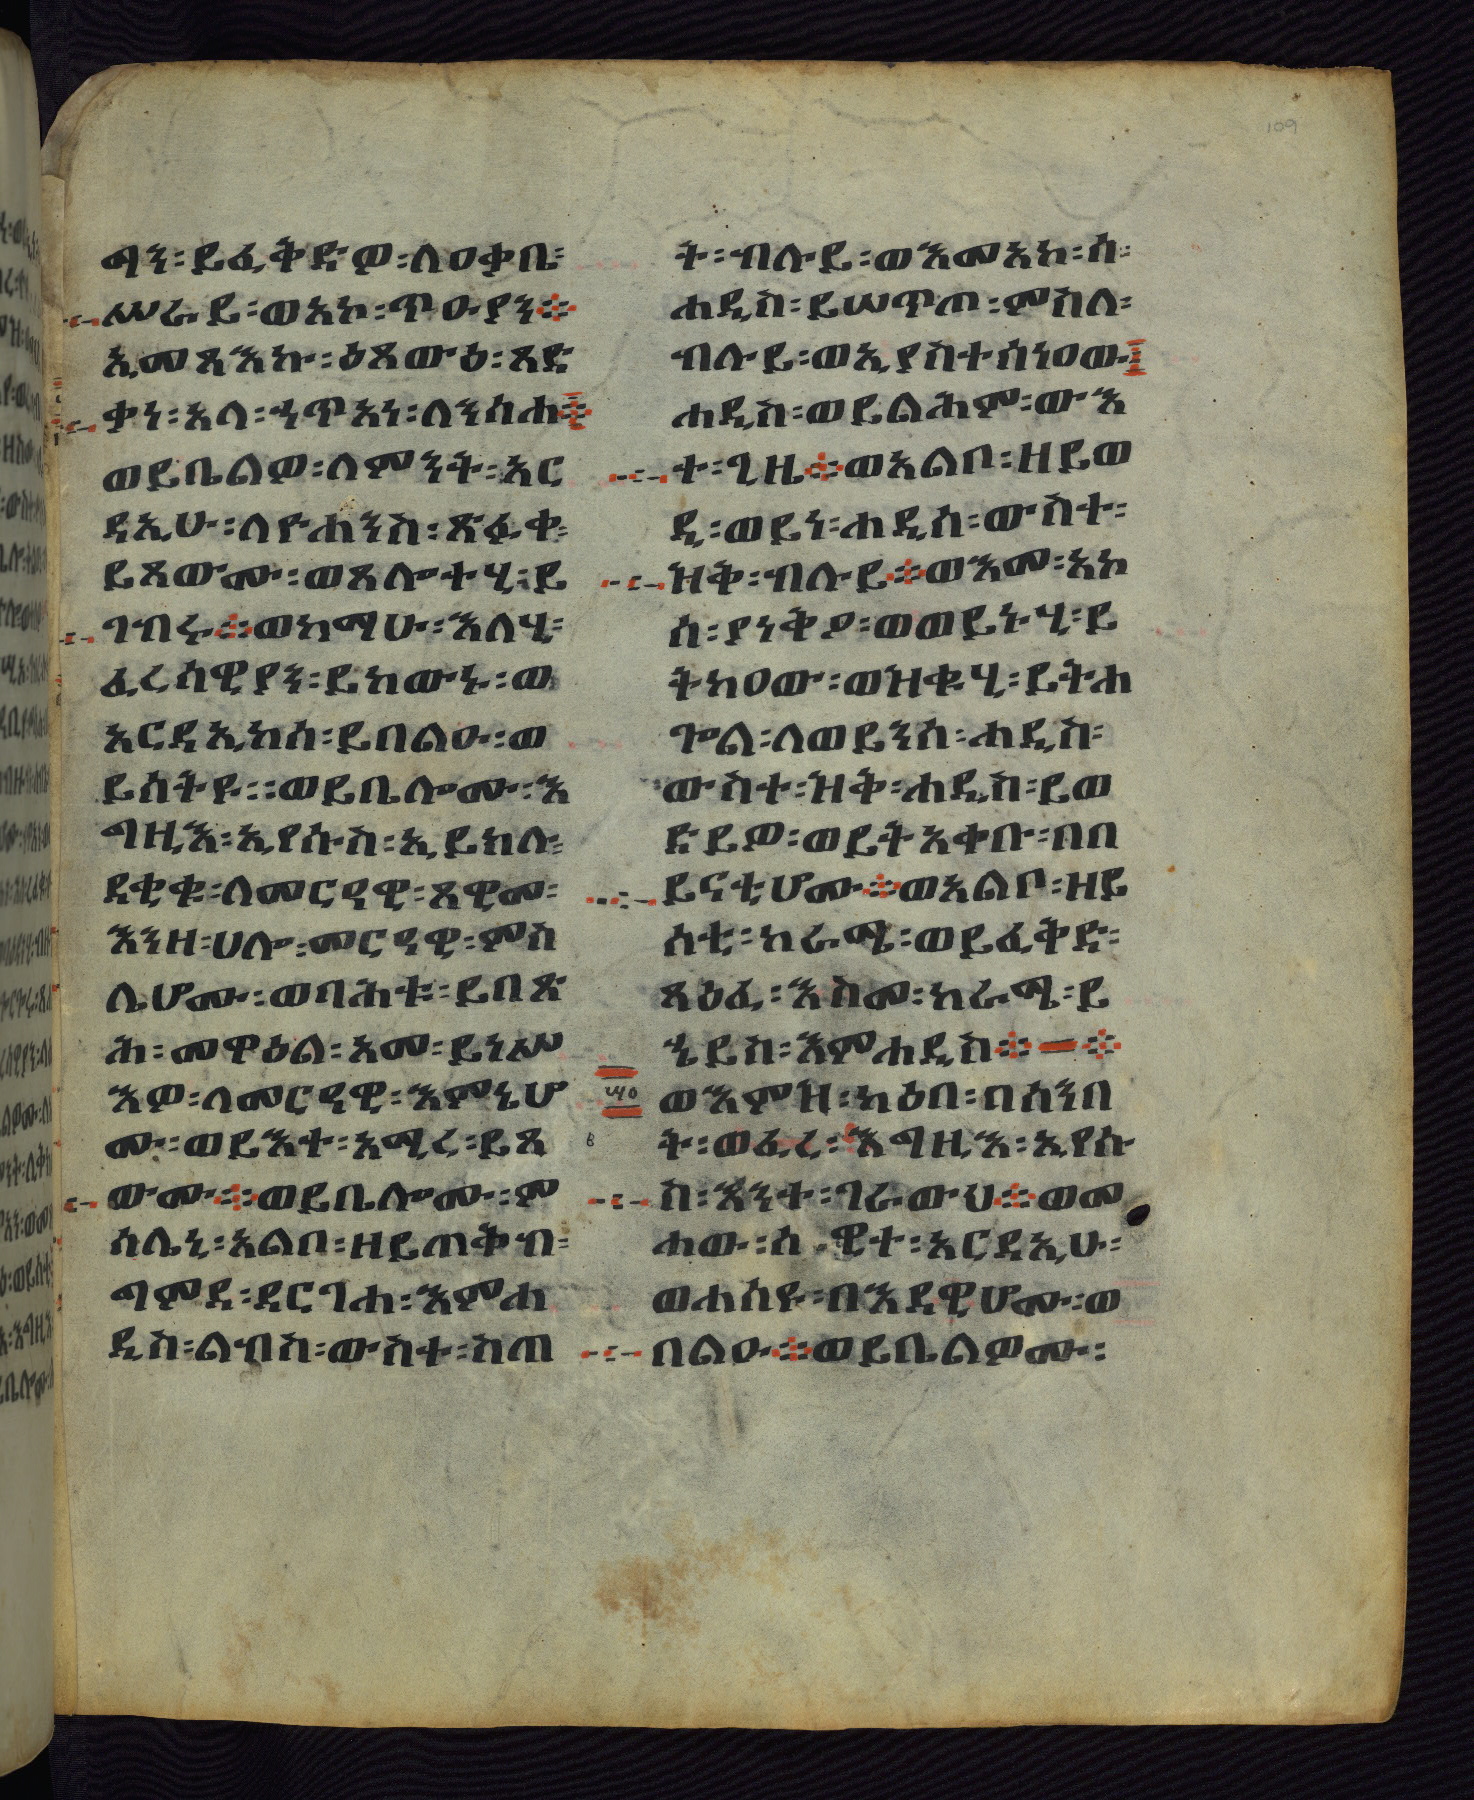 ማን፡ይፈቅድዎ፡ለዐቃቤ፡
ሥራይ፡ወአኮ፡ጥዑያን፨
ኢመጻእኩ፡ዕጸውዕ፡ጻድ
ቃነ፡አላ፡ኃጥአነ፡ለንስሐ፨
ወይቤልዎ፡ለምንት፡አር
ዳኢሁ፡ለዮሐንስ፡ጽፉቀ፡
ይጸውሙ፡ወጸሎተሂ፡ይ
ገብሩ፨ወከማሁ፡እለሂ፡
ፈሪሳዊያን፡ይከውኑ፡ወ
አርዳኢከሰ፡ይበልዑ፡ወ
ይሰትዩ፡፡ወይቤሎሙ፡እ
ግዚእ፡ኢየሱስ፡ኢይክሉ፡
ደቂቁ፡ለመርዓዊ፡ጸዊመ፡
እንዘ፡ሀሎ፡መርዓዊ፡ምስ
ሌሆሙ፡ወባሕቱ፡ይበጽ
ሕ፡መዋዕል፡አመ፡ይነሥ
እዎ፡ለመርዓዊ፡እምኔሆ
ሙ፡ወይእተ፡አሚረ፡ይጸ
ውሙ፨ወይቤሎሙ፡ም
ሳሌኒ፡አልቦ፡ዘይጠቅብ፡
ግምደ፡ድርገሐ፡እምሐ
ዲስ፡ልብስ፡ውስተ፡ስጠ
ት፡ብሉይ፡ወእመአኮ፡ሰ፡
ሐዲስ፡ይሠጥጦ፡ምስለ፡
ብሉይ፡ወኢያስተሰነዐው፡
ሐዲስ፡ወይልሕም፡ውእ
ተ፡ጊዜ፨ወአልቦ፡ዘይወ
ዲ፡ወይነ፡ሐዲሰ፡ውስተ፡
ዝቅ፡ብሉይ፨ወእመ፡አኮ
ሰ፡ያነቅዖ፡ወወይኑሂ፡ይ
ትከዐው፡ወዝቁሂ፡ይትሐ
ጐል፡ለወይንሰ፡ሐዲስ፡
ውስተ፡ዝቅ፡ሐዲስ፡ይወ
ድይዎ፡ወይትአቀቡ፡በበ
ይናቲሆሙ፨ወአልቦ፡ዘይ
ሰቲ፡ከራሜ፡ወይፈቅድ፡
ጻዕፈ፡እስመ፡ከራሜ፡ይ
ኄይስ፡እምሐዲስ፨—፨
፵፬
ወእምዝ፡ካዕበ፡በሰንበ
ት፡ወፈረ፡እግዚእ፡ኢየሱ
ስ፡እንተ፡ገራውህ፨ወመ
ሐው፡ሰዊተ፡አርዳኢሁ፡
ወሐሰዩ፡በእደዊሆሙ፡ወ
በልዑ፨ወይቤልዎሙ፡
109